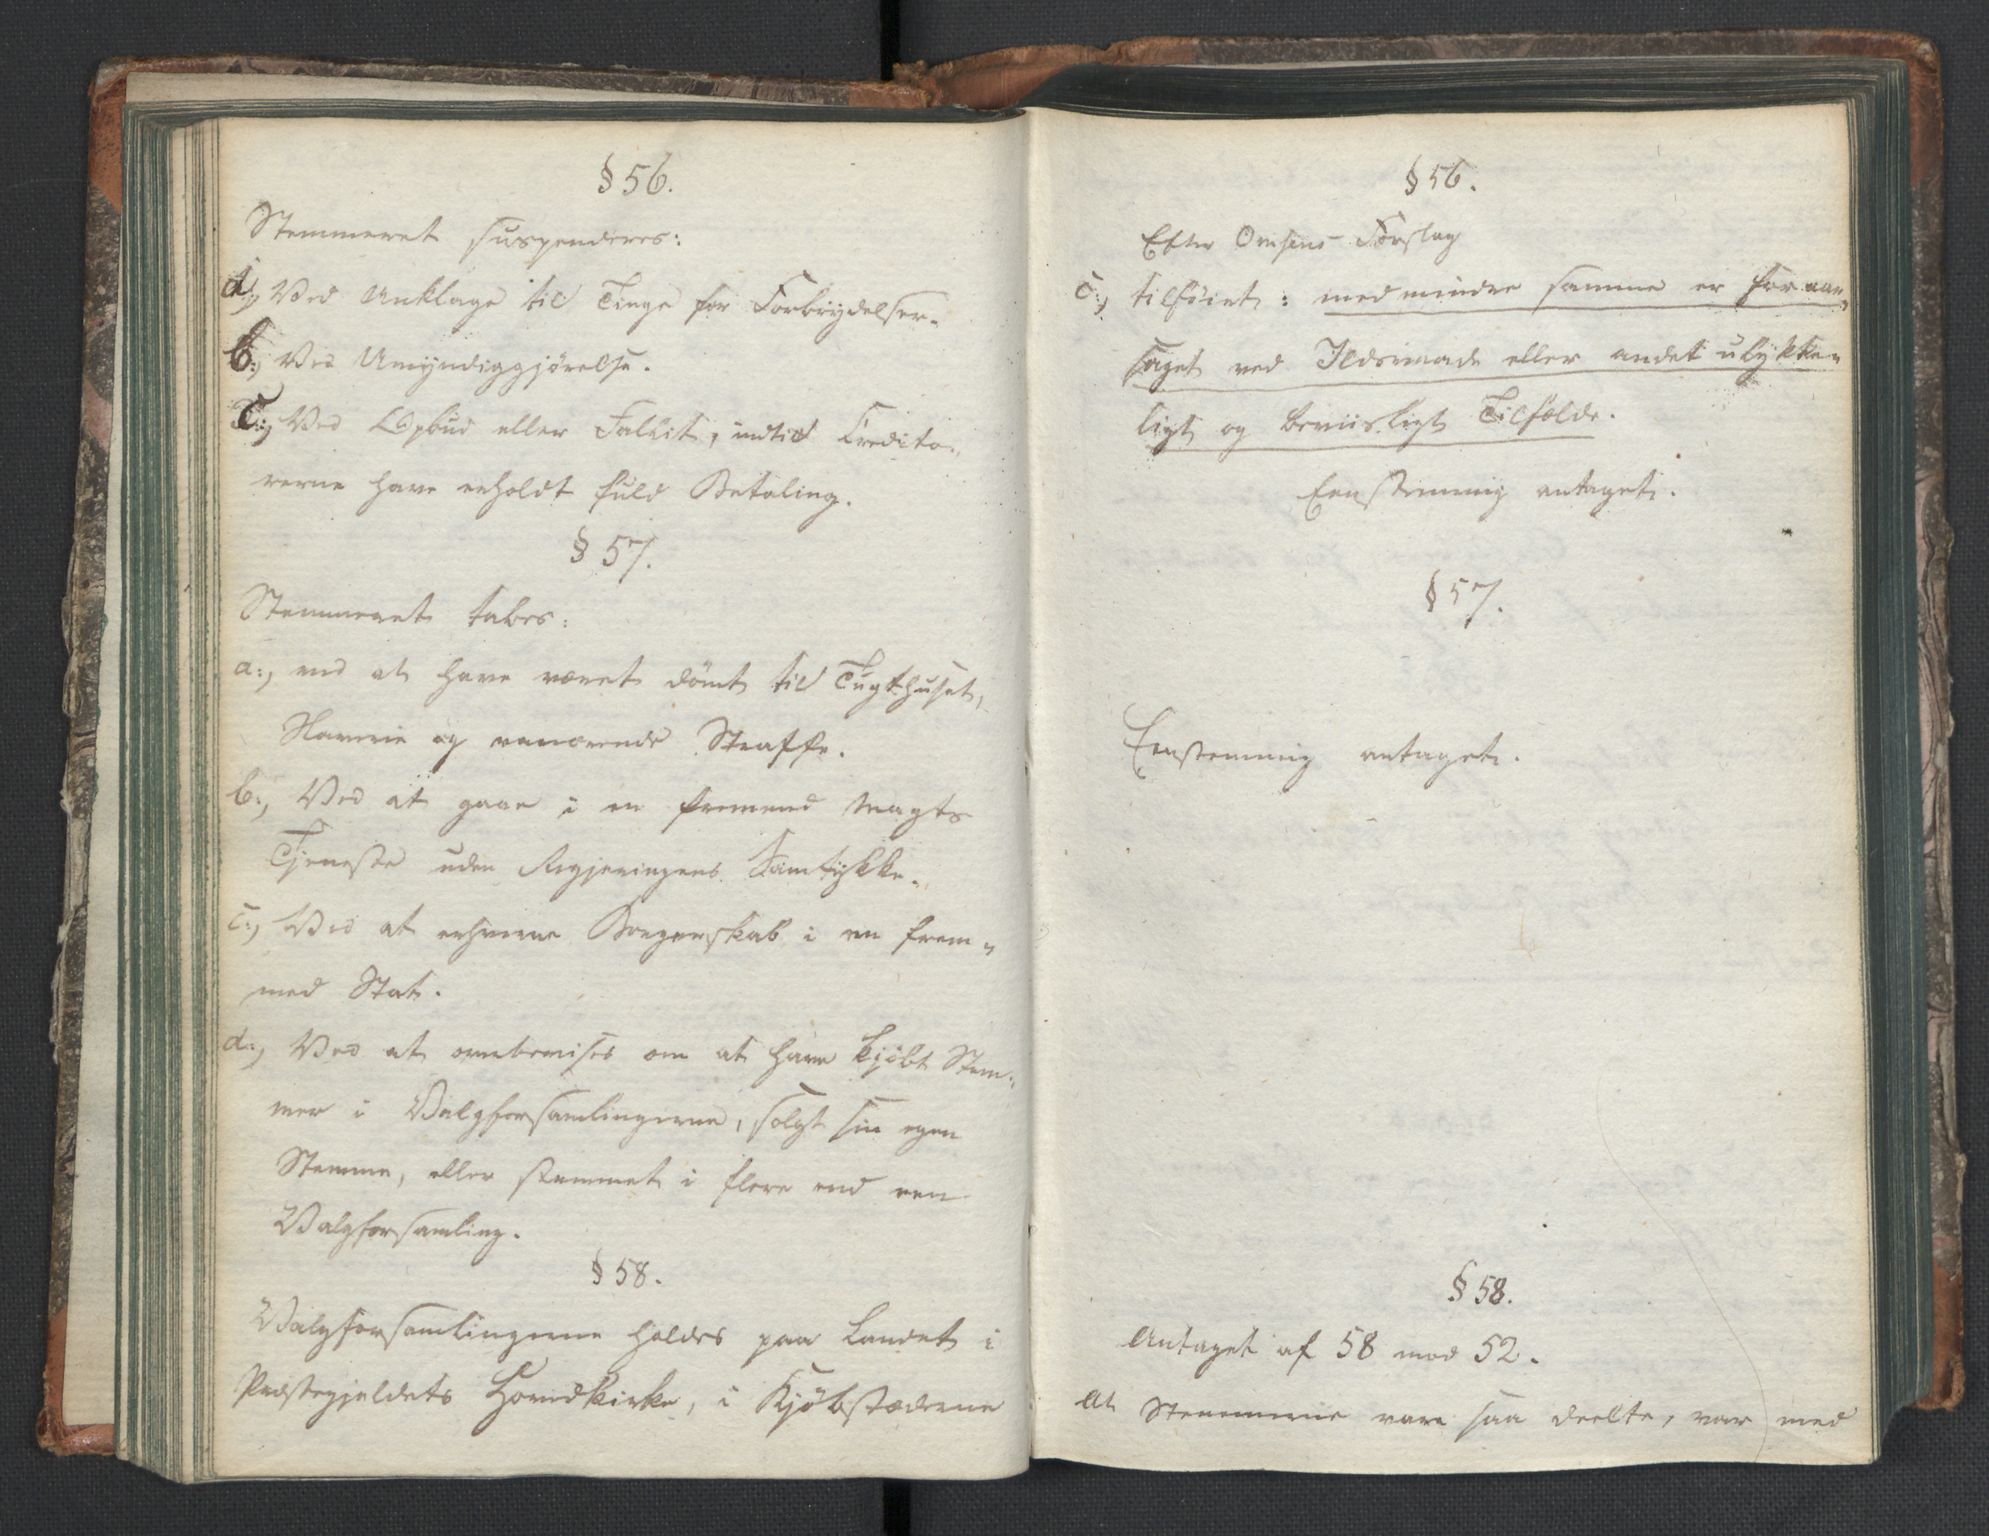 § 56.
Stemmeret suspenderes:
a:, Ved Anklage til Tinge for Forbrydelser.
b:, Ved Umyndiggjørelse.
c:, Ved Opbud eller Fallit, indtil Credito-
rerne have erholdt fuld Betaling.
§ 57.
Stemmeret tabes:
a:, ved at have været dömt til Tugthuset,
Slaverie og vanærende Straffe.
b:, Ved at gaae i en fremmed Magts
Tjeneste uden Regjeringens Samtykke.
c:, Ved at erhverve Borgerskab i en frem-
med Stat.
d:, Ved at overbevises om at have kjøbt Stem-
mer i Valgforsamlingerne, solgt sin egen
Stemme, eller stemmet i flere end een
Valgforsamling.
§ 58.
Valgforsamlingerne holdes paa Landet i
Præstegjeldets Hovedkirke, i Kjøbstæderne
§ 56.
Efter Omsens Forslag
c:, tilføiet: medmindre samme er foraar-
saget ved Ildsvaade eller andet ulykke-
ligt og beviisligt Tilfælde.
Eenstemmig antaget.
§ 57.
Eenstemmig antaget.
§ 58.
Antaget af 58 mod 52.
At Stemmerne vare saa deelte, var med